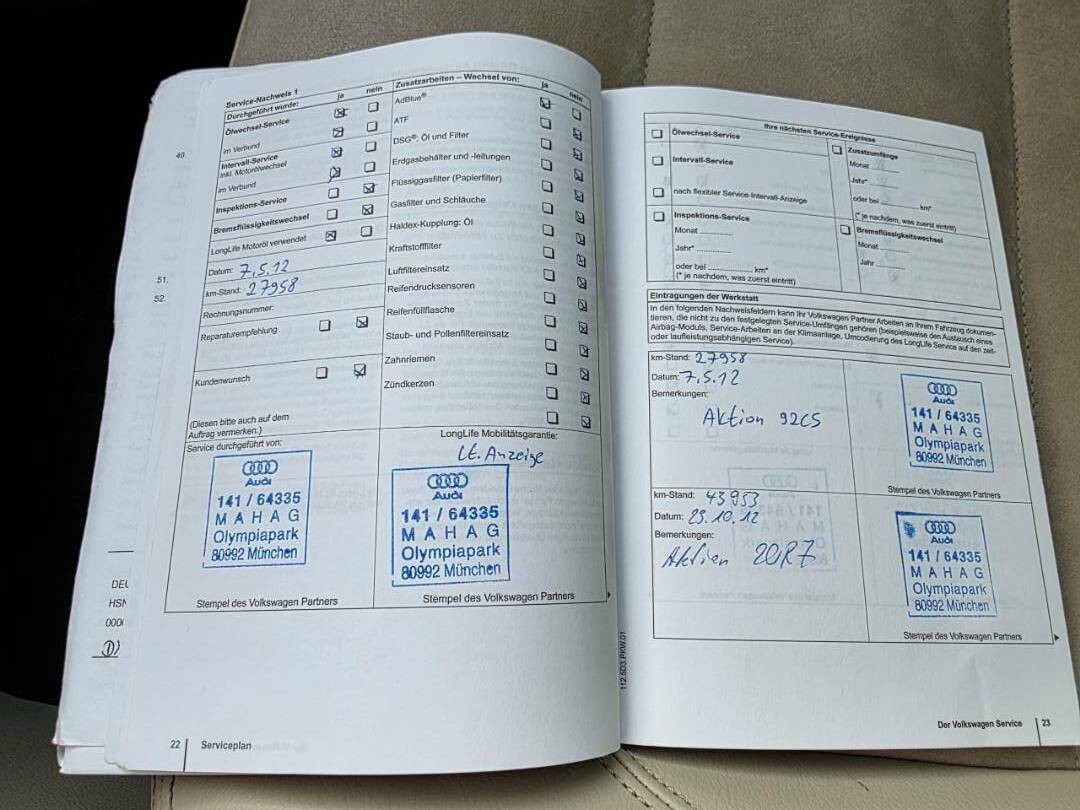 Service-Nachweis 1
Durchgeführt wurde: ja nein
Ölwechsel-Service
im Verbund
49.
Intervall-Service
inkl. Motorölwechsel
im Verbund
Inspektions-Service
Bremsflüssigkeitswechsel
LongLife Motoröl verwendet
Datum: 7.5.12
51.
km-Stand: 27958
52.
Rechnungsnummer:
Reparaturempfehlung
Kundenwunsch
(Diesen bitte auch auf dem
Auftrag vermerken.)
Service durchgeführt von:
Audi
141 / 64335
MAHAG
Olympiapark
80992 München
Stempel des Volkswagen Partners
DEU
HSN
000
22 Serviceplan
Zusatzarbeiten – Wechsel von: ja nein
AdBlue®
ATF
DSG®: Öl und Filter
Erdgasbehälter und -leitungen
Flüssiggasfilter (Papierfilter)
Gasfilter und Schläuche
Haldex-Kupplung: Öl
Kraftstofffilter
Luftfiltereinsatz
Reifendrucksensoren
Reifenfüllflasche
Staub- und Pollenfiltereinsatz
Zahnriemen
Zündkerzen
LongLife Mobilitätsgarantie:
Lt. Anzeige
Audi
141 / 64335
MAHAG
Olympiapark
80992 München
Stempel des Volkswagen Partners
Ihre nächsten Service-Ereignisse
Ölwechsel-Service
Intervall-Service
nach flexibler Service-Intervall-Anzeige
Inspektions-Service
Monat
Jahr*
oder bei km*
(* je nachdem, was zuerst eintritt)
Zusatzumfänge
Monat
Jahr*
oder bei km*
(* je nachdem, was zuerst eintritt)
Bremsflüssigkeitswechsel
Monat
Jahr
Eintragungen der Werkstatt
In den folgenden Nachweisfeldern kann Ihr Volkswagen Partner Arbeiten an Ihrem Fahrzeug dokumen-
tieren, die nicht zu den festgelegten Service-Umfängen gehören (beispielsweise den Austausch eines
Airbag-Moduls, Service-Arbeiten an der Klimaanlage, Umcodierung des LongLife Service auf den zeit-
oder laufleistungsabhängigen Service).
km-Stand: 27958
Datum: 7.5.12
Bemerkungen:
Aktion 92C5
Audi
141 / 64335
MAHAG
Olympiapark
80992 München
Stempel des Volkswagen Partners
km-Stand: 43953
Datum: 29.10.12
Bemerkungen:
Aktion 20R7
Audi
141 / 64335
MAHAG
Olympiapark
80992 München
Stempel des Volkswagen Partners
112.5D3.PKW.01
Der Volkswagen Service 23